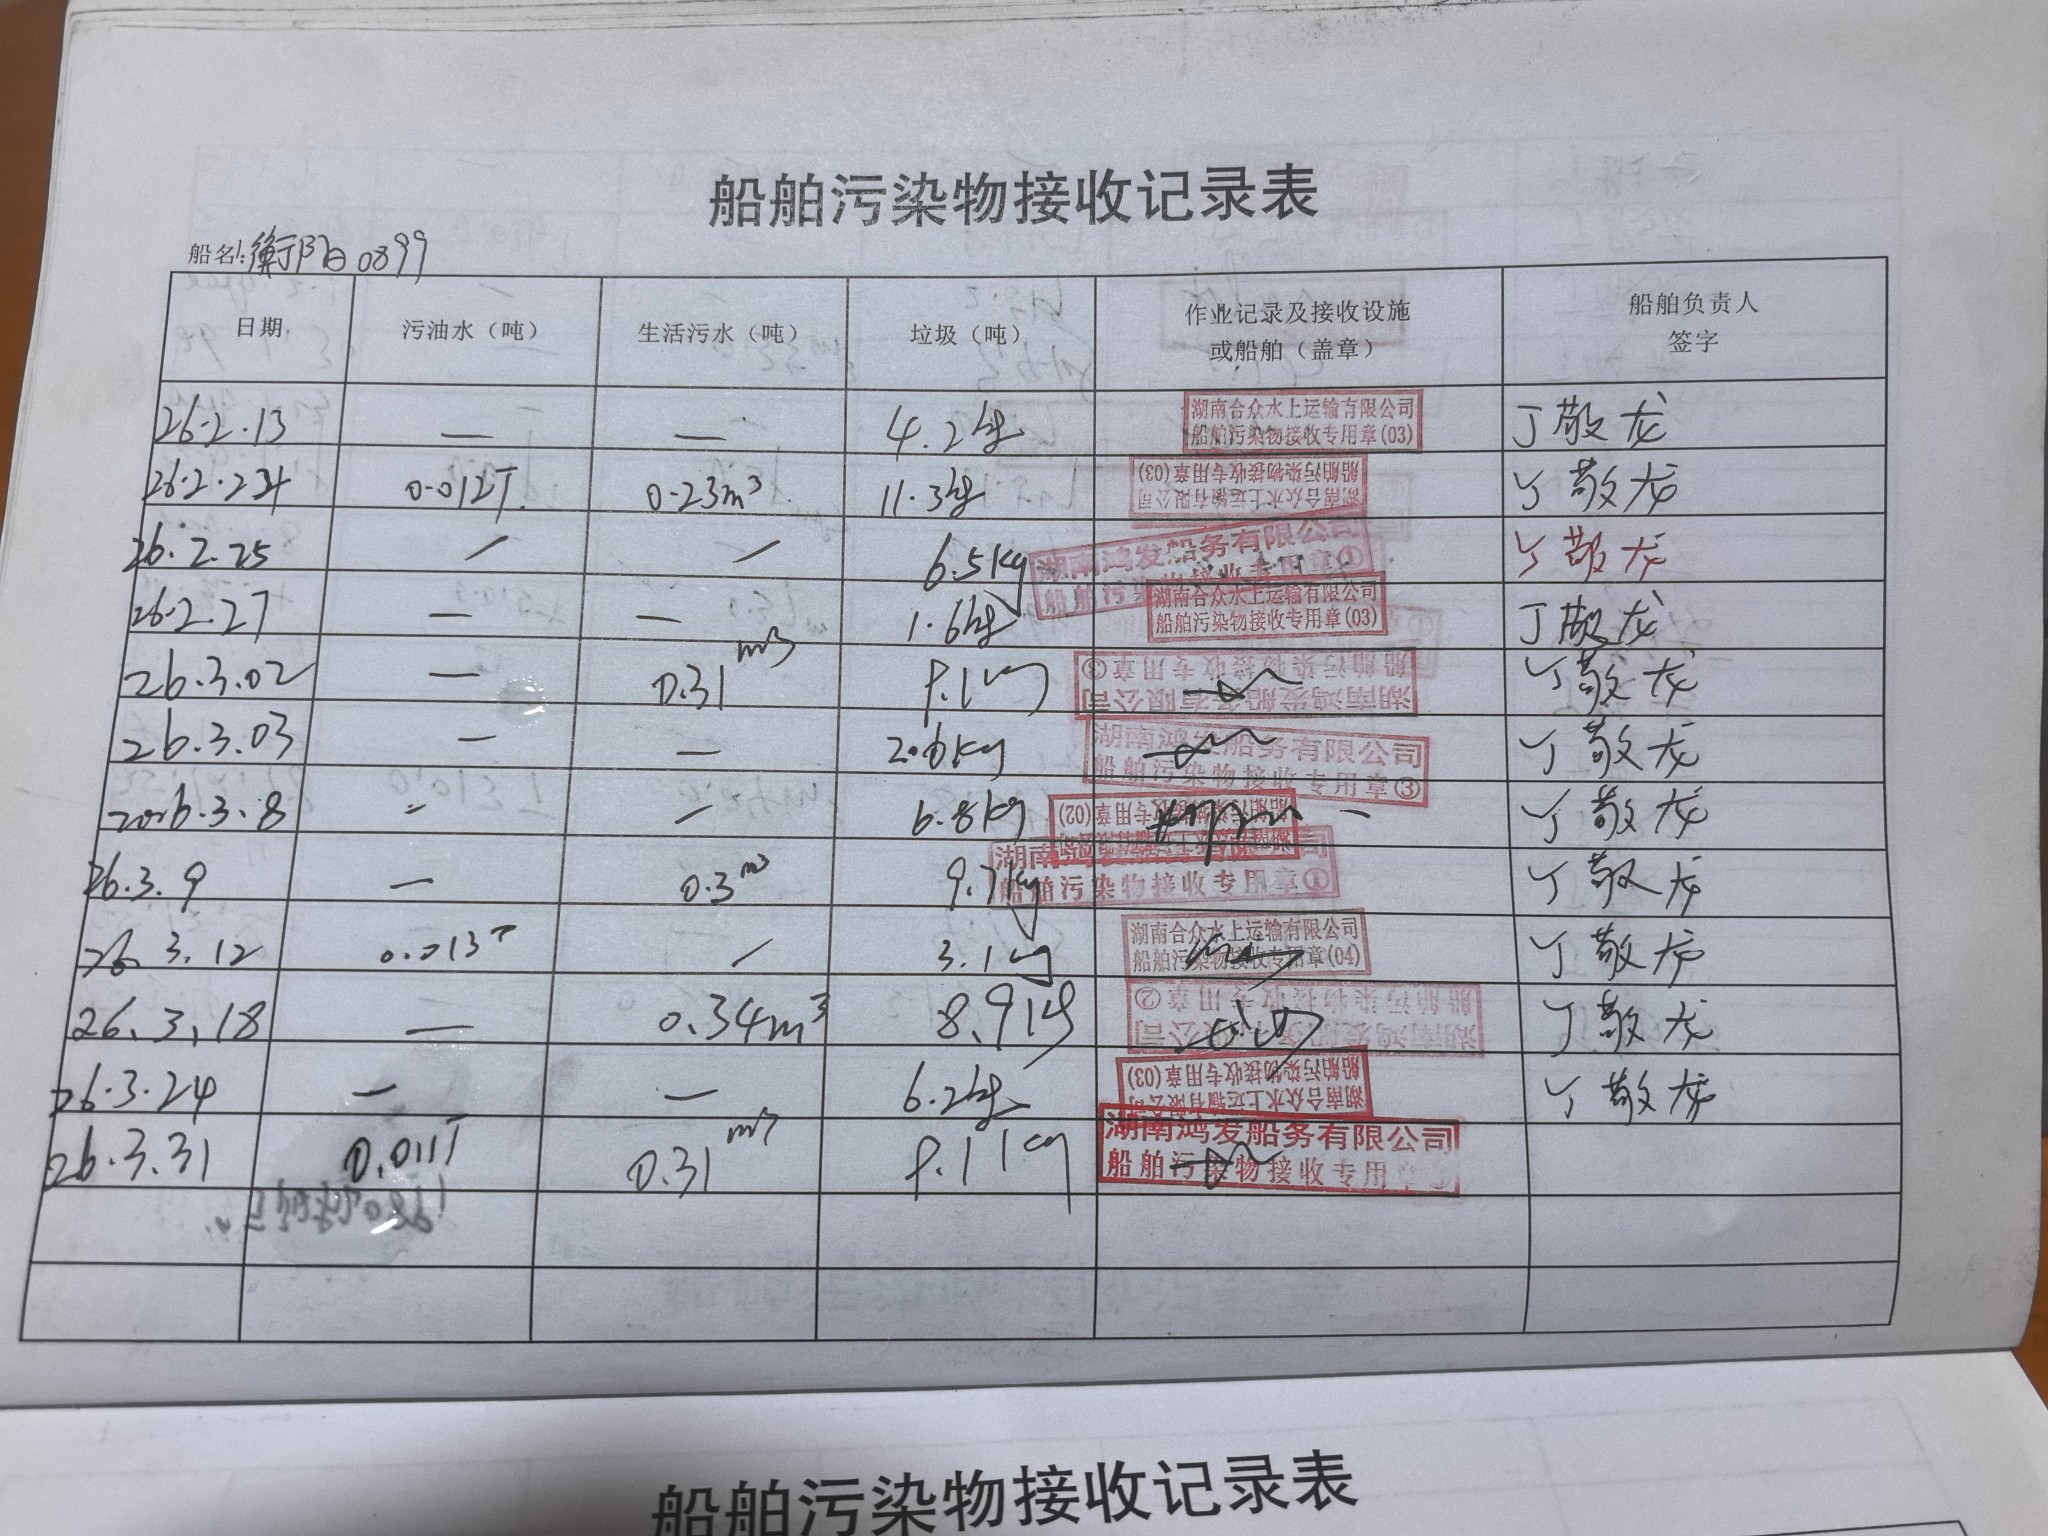 船舶污染物接收记录表
船名:衡阳0899
日期 污油水（吨） 生活污水（吨） 垃圾（吨） 作业记录及接收设施或船舶（盖章） 船舶负责人签字
26.2.13 — — 4.2kg 湖南合众水上运输有限公司 船舶污染物接收专用章(03) 丁敬龙
0.012T 0.23m³ 11.3kg 湖南合众水上运输有限公司 船舶污染物接收专用章(03) 丁敬龙
26.2.25 / / 6.5kg 湖南鸿发船务有限公司 船舶污染物接收专用章① 丁敬龙
26.2.27 — — 1.6kg 湖南合众水上运输有限公司 船舶污染物接收专用章(03) 丁敬龙
26.3.02 — 0.31m³ 湖南鸿发船务有限公司 船舶污染物接收专用章③ 丁敬龙
26.3.03 — — 湖南鸿发船务有限公司 船舶污染物接收专用章③ 丁敬龙
2026.3.8 - / 6.8kg 船舶污染物接收专用章(02) — 丁敬龙
26.3.9 — 0.3m³ 9.7kg 湖南鸿发船务有限公司 船舶污染物接收专用章① 丁敬龙
26.3.12 0.013T / 3.1kg 湖南合众水上运输有限公司 船舶污染物接收专用章(04) 丁敬龙
26.3.18 — 0.34m³ 8.9kg 湖南鸿发船务有限公司 船舶污染物接收专用章② 丁敬龙
26.3.24 — — 6.2kg 湖南合众水上运输有限公司 船舶污染物接收专用章(03) 丁敬龙
26.3.31 0.011T 0.31m³ 湖南鸿发船务有限公司 船舶污染物接收专用章
船舶污染物接收记录表